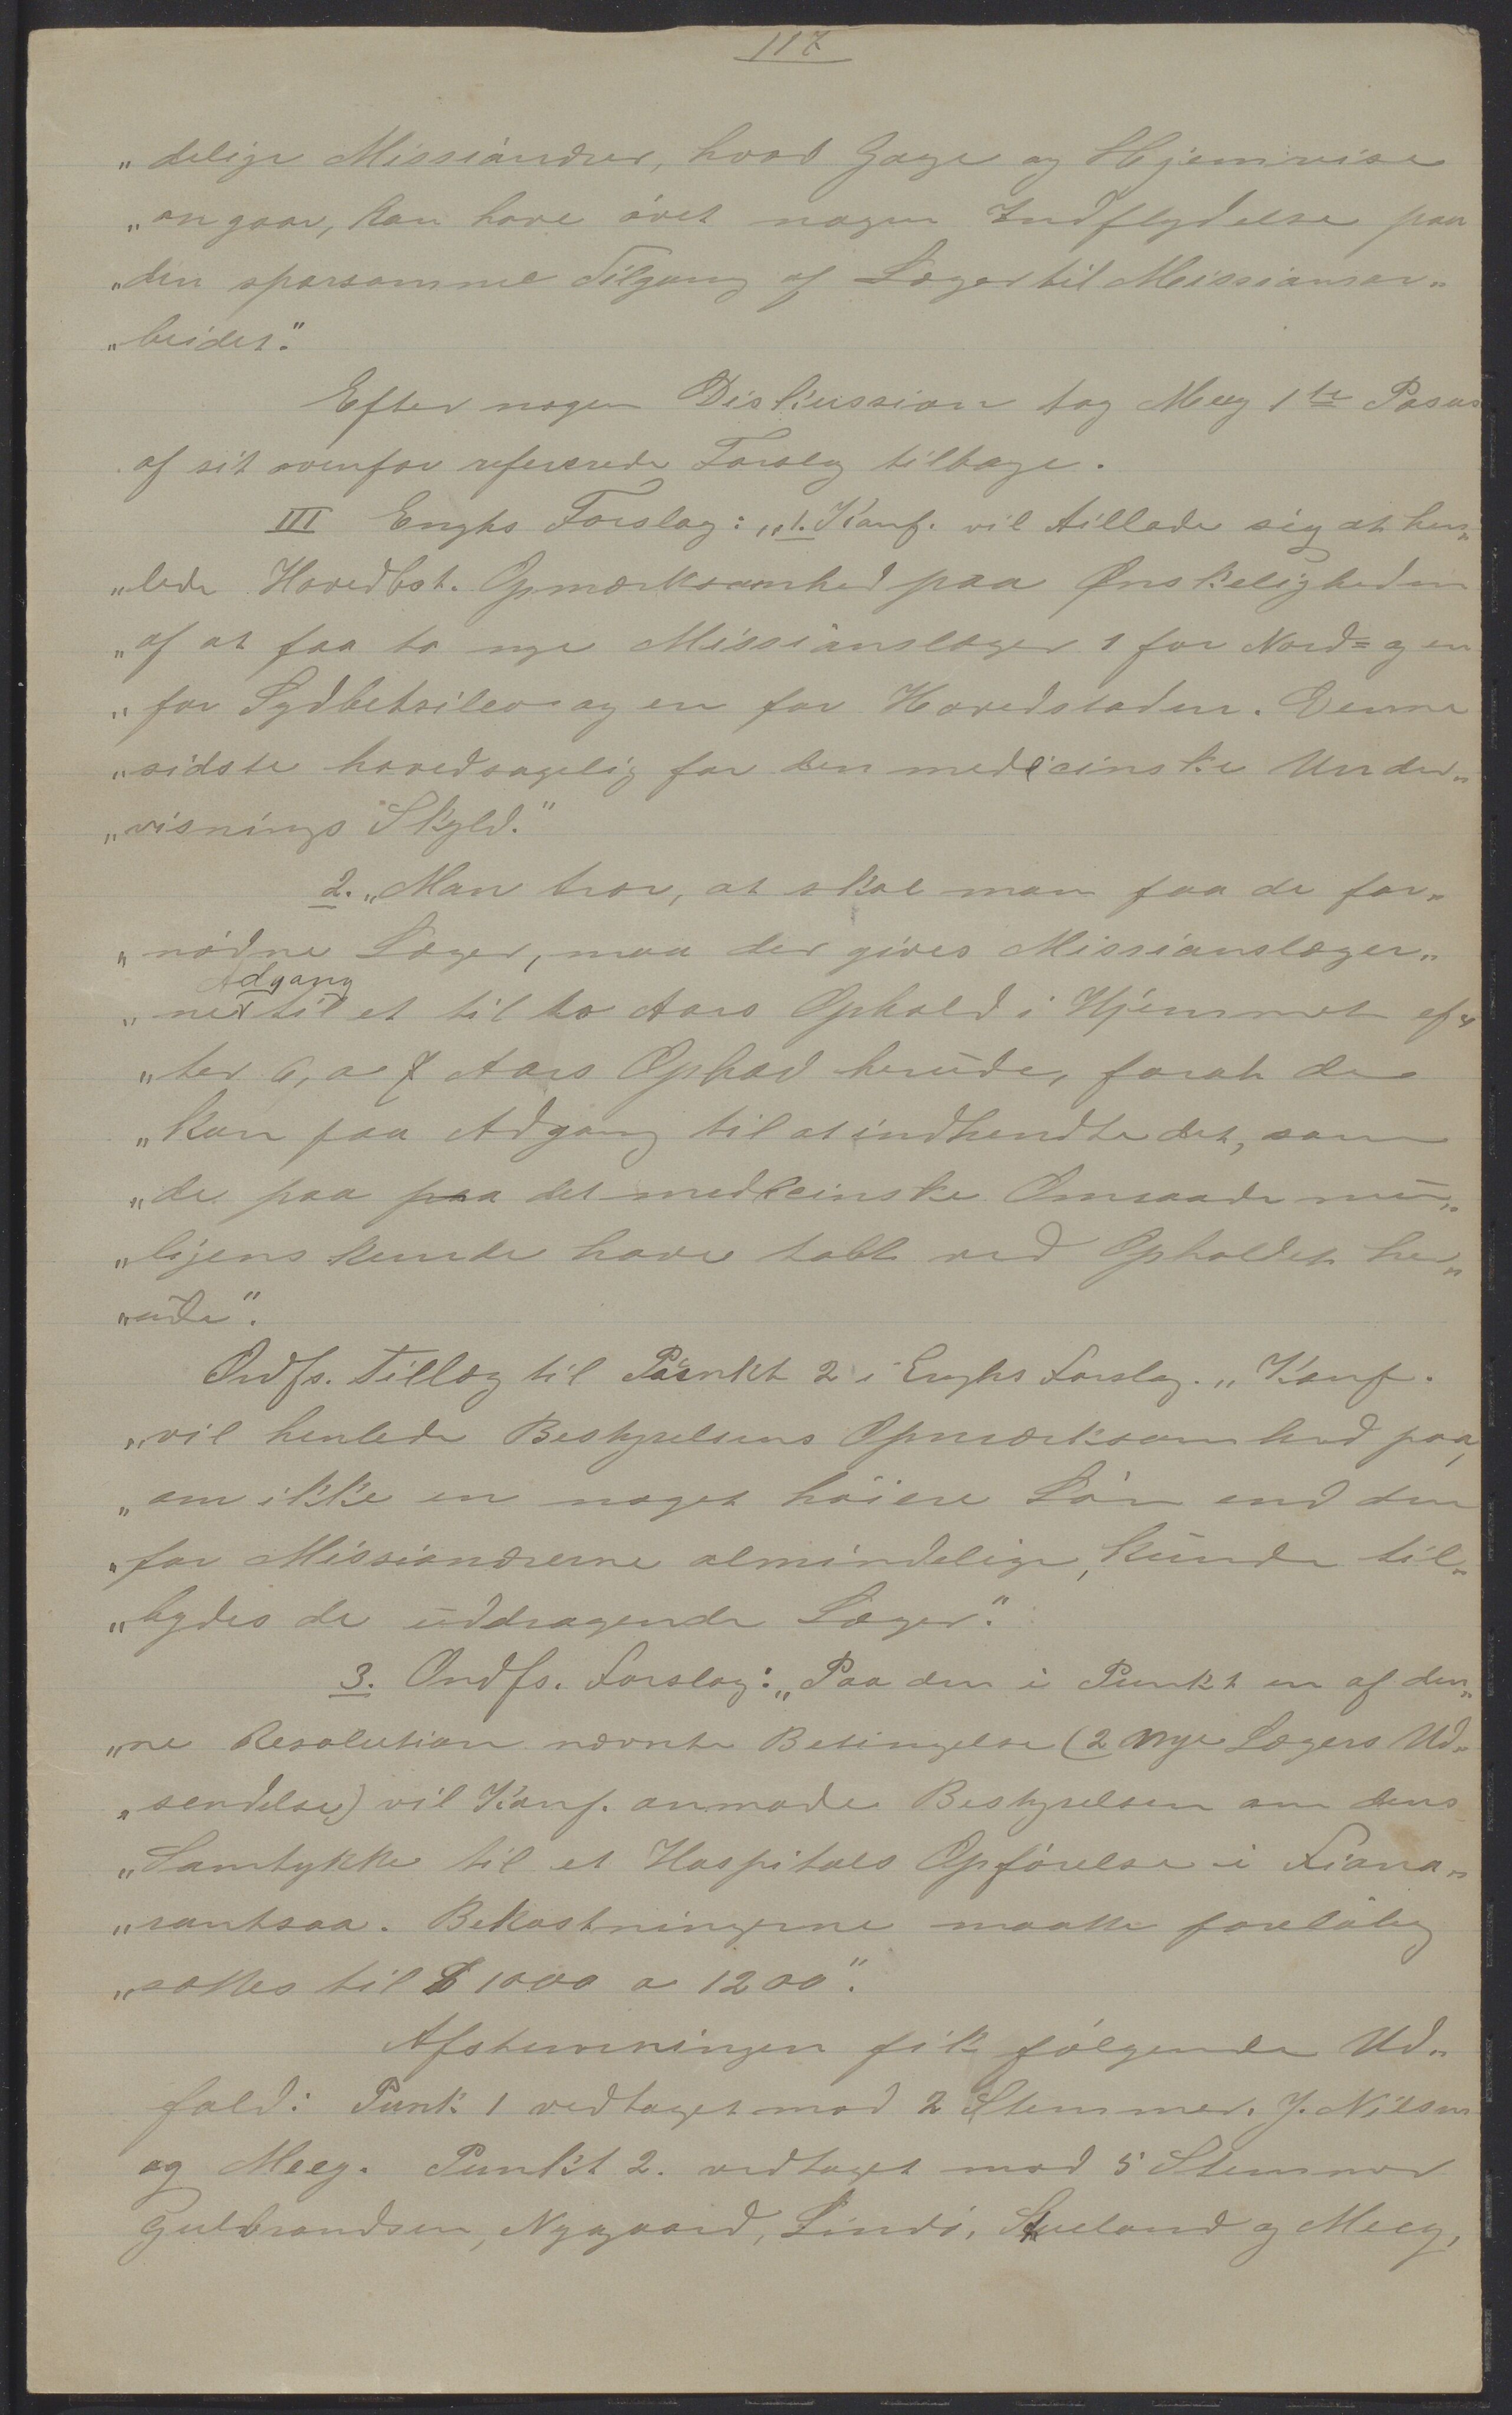 117
„delige Missionærer, hvad Gage og Hjemreise
„angaar, kan have øvet nogen Indflydelse paa
„den sparsomme Tilgang af Læger til Missionsar„
„beidet."
Efter nogen Diskussion tog Meeg 1ste Passus
af sit ovenfor refererede Forslag tilbage.
III Enghs Forslag: „1. Konf. vil tillade sig at hen„
„lede Hovedbst. Opmærksomhed paa Ønskeligheden
„af at faa to nye Missionslæger 1 for Nord= og en
„for Sydbetsileo og en for Hovedstaden. Denne
„sidste hovedsagelig for den medicinske Under„
„visnings Skyld."
2. „Man tror, at skal man faa de for„
„nødne Læger, maa der gives Missionslæger„
Adgang
„ne til et til to Aars Ophold i Hjemmet ef„
„ter 6, a 7 Aars Ophod herude, forat de
„kan faa Adgang til at indhendte det, som
„de paa paa det medicinske Omraade mu„
„ligens kunde have tabt ved Opholdet her„
„ude".
Ordfs. Tillæg til Punkt 2 i Enghs Forslag. „Konf.
„vil henlede Bestyrelsens Opmærksomhed paa,
„om ikke en noget høiere Løn end den
„for Missionærerne almindelige, kunde til„
„bydes de uddragende Læger."
3. Ordfs. Forslag: „Paa den i Punkt en af den„
„ne Resolution nævnte Betingelse (2 nye Lægers Ud„
„sendelse) vil Konf. anmode Bestyrelsen om dens
„Samtykke til et Hospitals Opførelse i Fiana„
„rantsoa. Bekostningerne maatte foreløbig
„sættes til $ 1000 a 1200".
Afstemningen fik følgende Ud„
fald: Punk 1 vedtaget mod 2 Stemmer. J. Nilsen
og Meeg. Punkt 2. vedtaget mod 5 Stemmer
Gulbrandsen, Nygaard, Lindø, Stueland og Meeg,